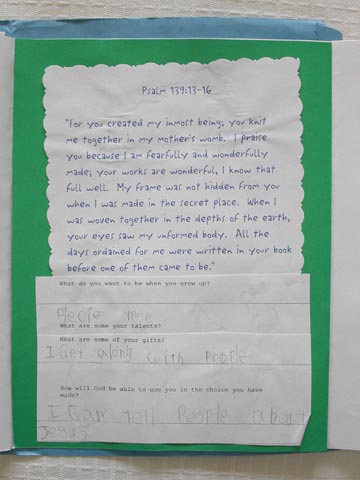 Psalm 139:13-16
"For you created my inmost being; you knit
me together in my mother's womb. I praise
you because I am fearfully and wonderfully
made; your works are wonderful, I know that
full well. My frame was not hidden from you
when I was made in the secret place. When I
was woven together in the depths of the earth,
your eyes saw my unformed body. All the
days ordained for me were written in your book
before one of them came to be."
What do you want to be when you grow up?
Plecie man
What are some your talents?
What are some of your gifts?
I Get along with People
How will God be able to use you in the choice you have
made?
I Can tell People about
Jesus